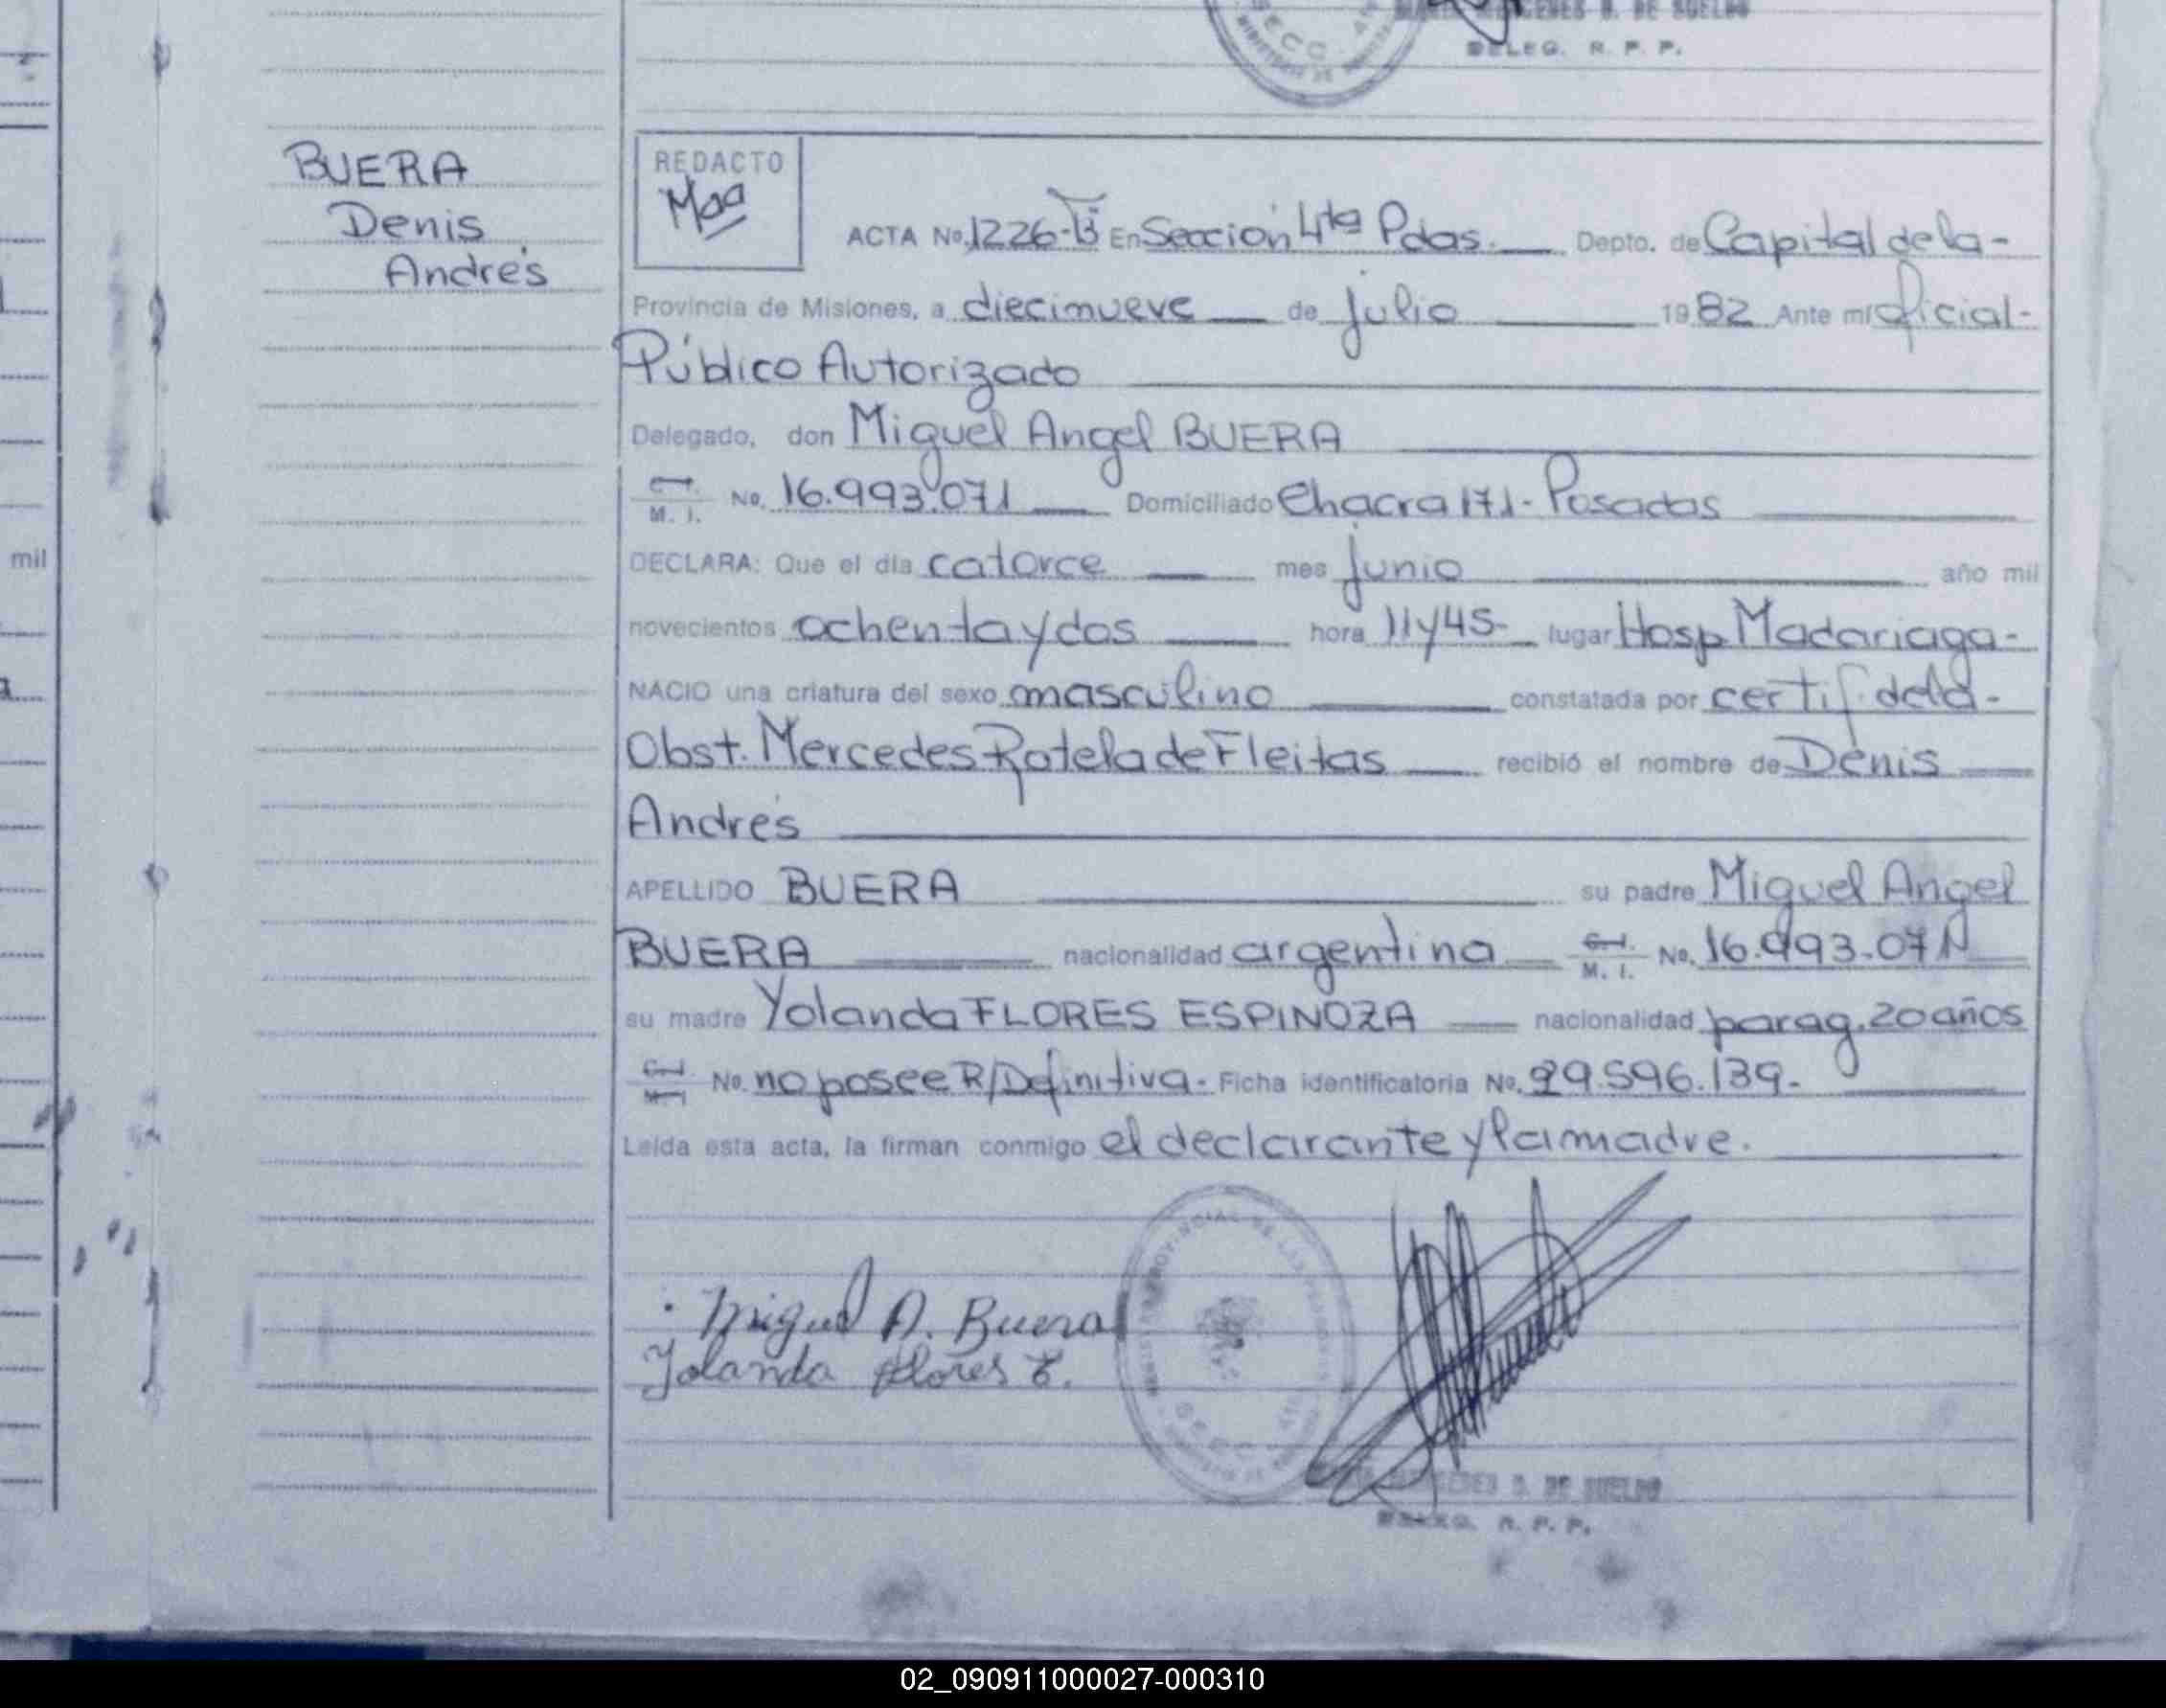 DE SUELDO
DELEG. R. P. P.
BUERA
Denis
Andrés
REDACTO
ACTA No. 1226-TºI En Sección 4ta Pdas. Depto. de Capital de la-
Provincia de Misiones, a diecinueve de julio 1982 Ante mí oficial-
Público Autorizado
Delegado, don Miguel Angel BUERA
M. I. No. 16.993.071 Domiciliado Chacra 171- Posadas
mil
DECLARA: Que el día catorce mes junio año mil
novecientos ochenta y dos hora 11 y 45- lugar Hosp Madariaga-
NACIO una criatura del sexo masculino constatada por certif. de la-
Obst. Mercedes Rotela de Fleitas recibió el nombre de Denis
Andrés
APELLIDO BUERA su padre Miguel Angel
BUERA nacionalidad argentina C. I. M. I. No. 16.993.071
su madre Yolanda FLORES ESPINOZA nacionalidad parag. 20 años
C. I. M. I. No. no posee R/Definitiva- Ficha identificatoria No. 29.596.139-
Leída esta acta, la firman conmigo el declarante y la madre.
Miguel A. Buera
Yolanda Flores E.
DE SUELDO
R. P. P.
02_090911000027-000310